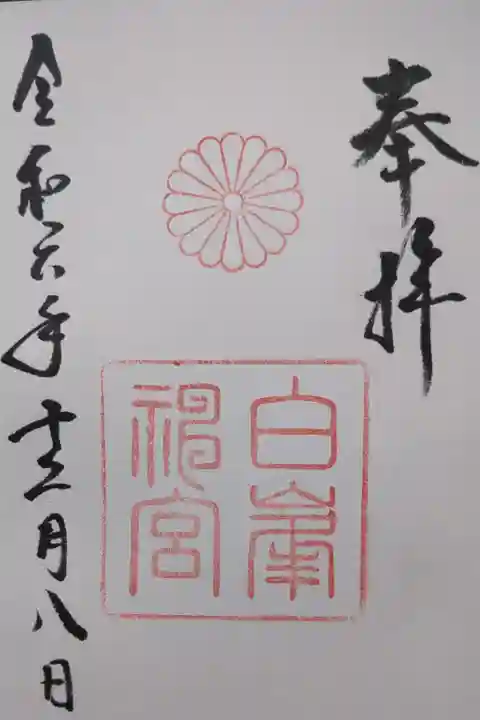 奉拝
白峯
神宮
令和六年十二月八日